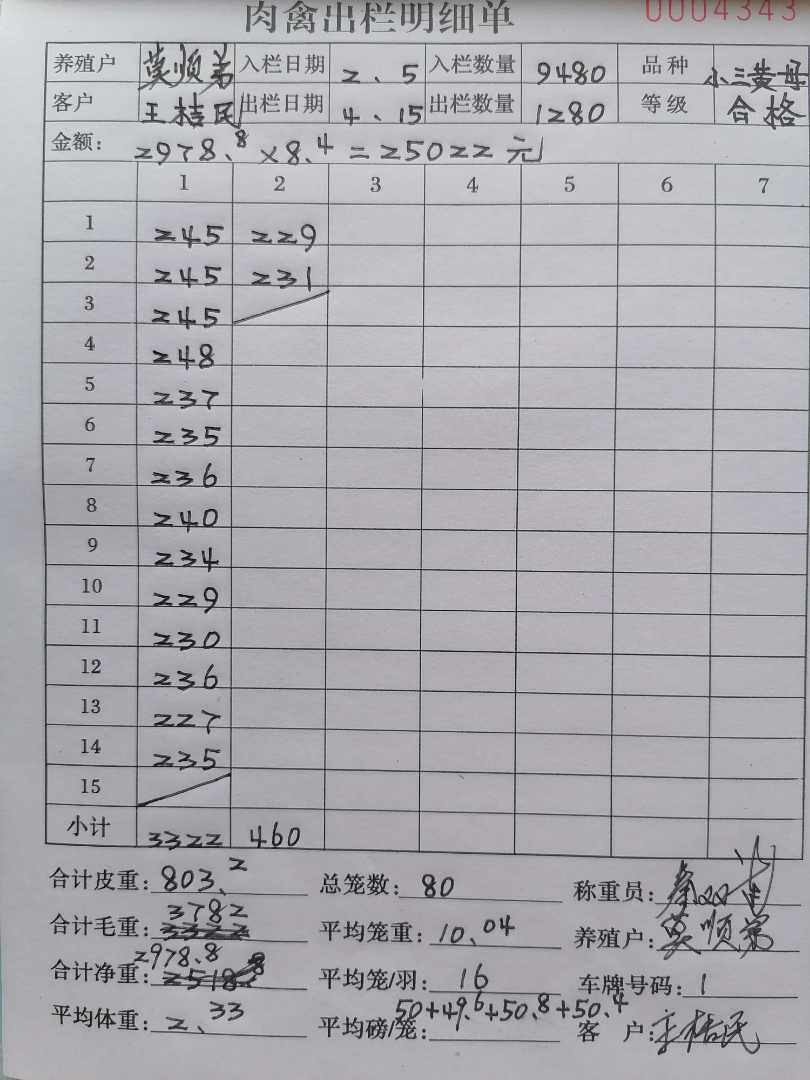 肉禽出栏明细单 0004343
养殖户 莫顺弟 入栏日期 2、5 入栏数量 9480 品种 小三黄母
客户 王桔民 出栏日期 4、15 出栏数量 1280 等级 合格
金额: 2978.8×8.4=25022元
1 2 3 4 5 6 7
1 245 229
2 245 231
3 245
4 248
5 237
6 235
7 236
8 240
9 234
10 229
11 230
12 236
13 227
14 235
15
小计 3322 460
合计皮重: 803.2 总笼数: 80 称重员:
合计毛重: 3782 3322 平均笼重: 10.04 养殖户: 莫顺弟
合计净重: 2978.8 2518.8 平均笼/羽: 16 车牌号码: 1
平均体重: 2.33 平均磅/笼: 50+49.6+50.8+50.4 客户: 王桔民